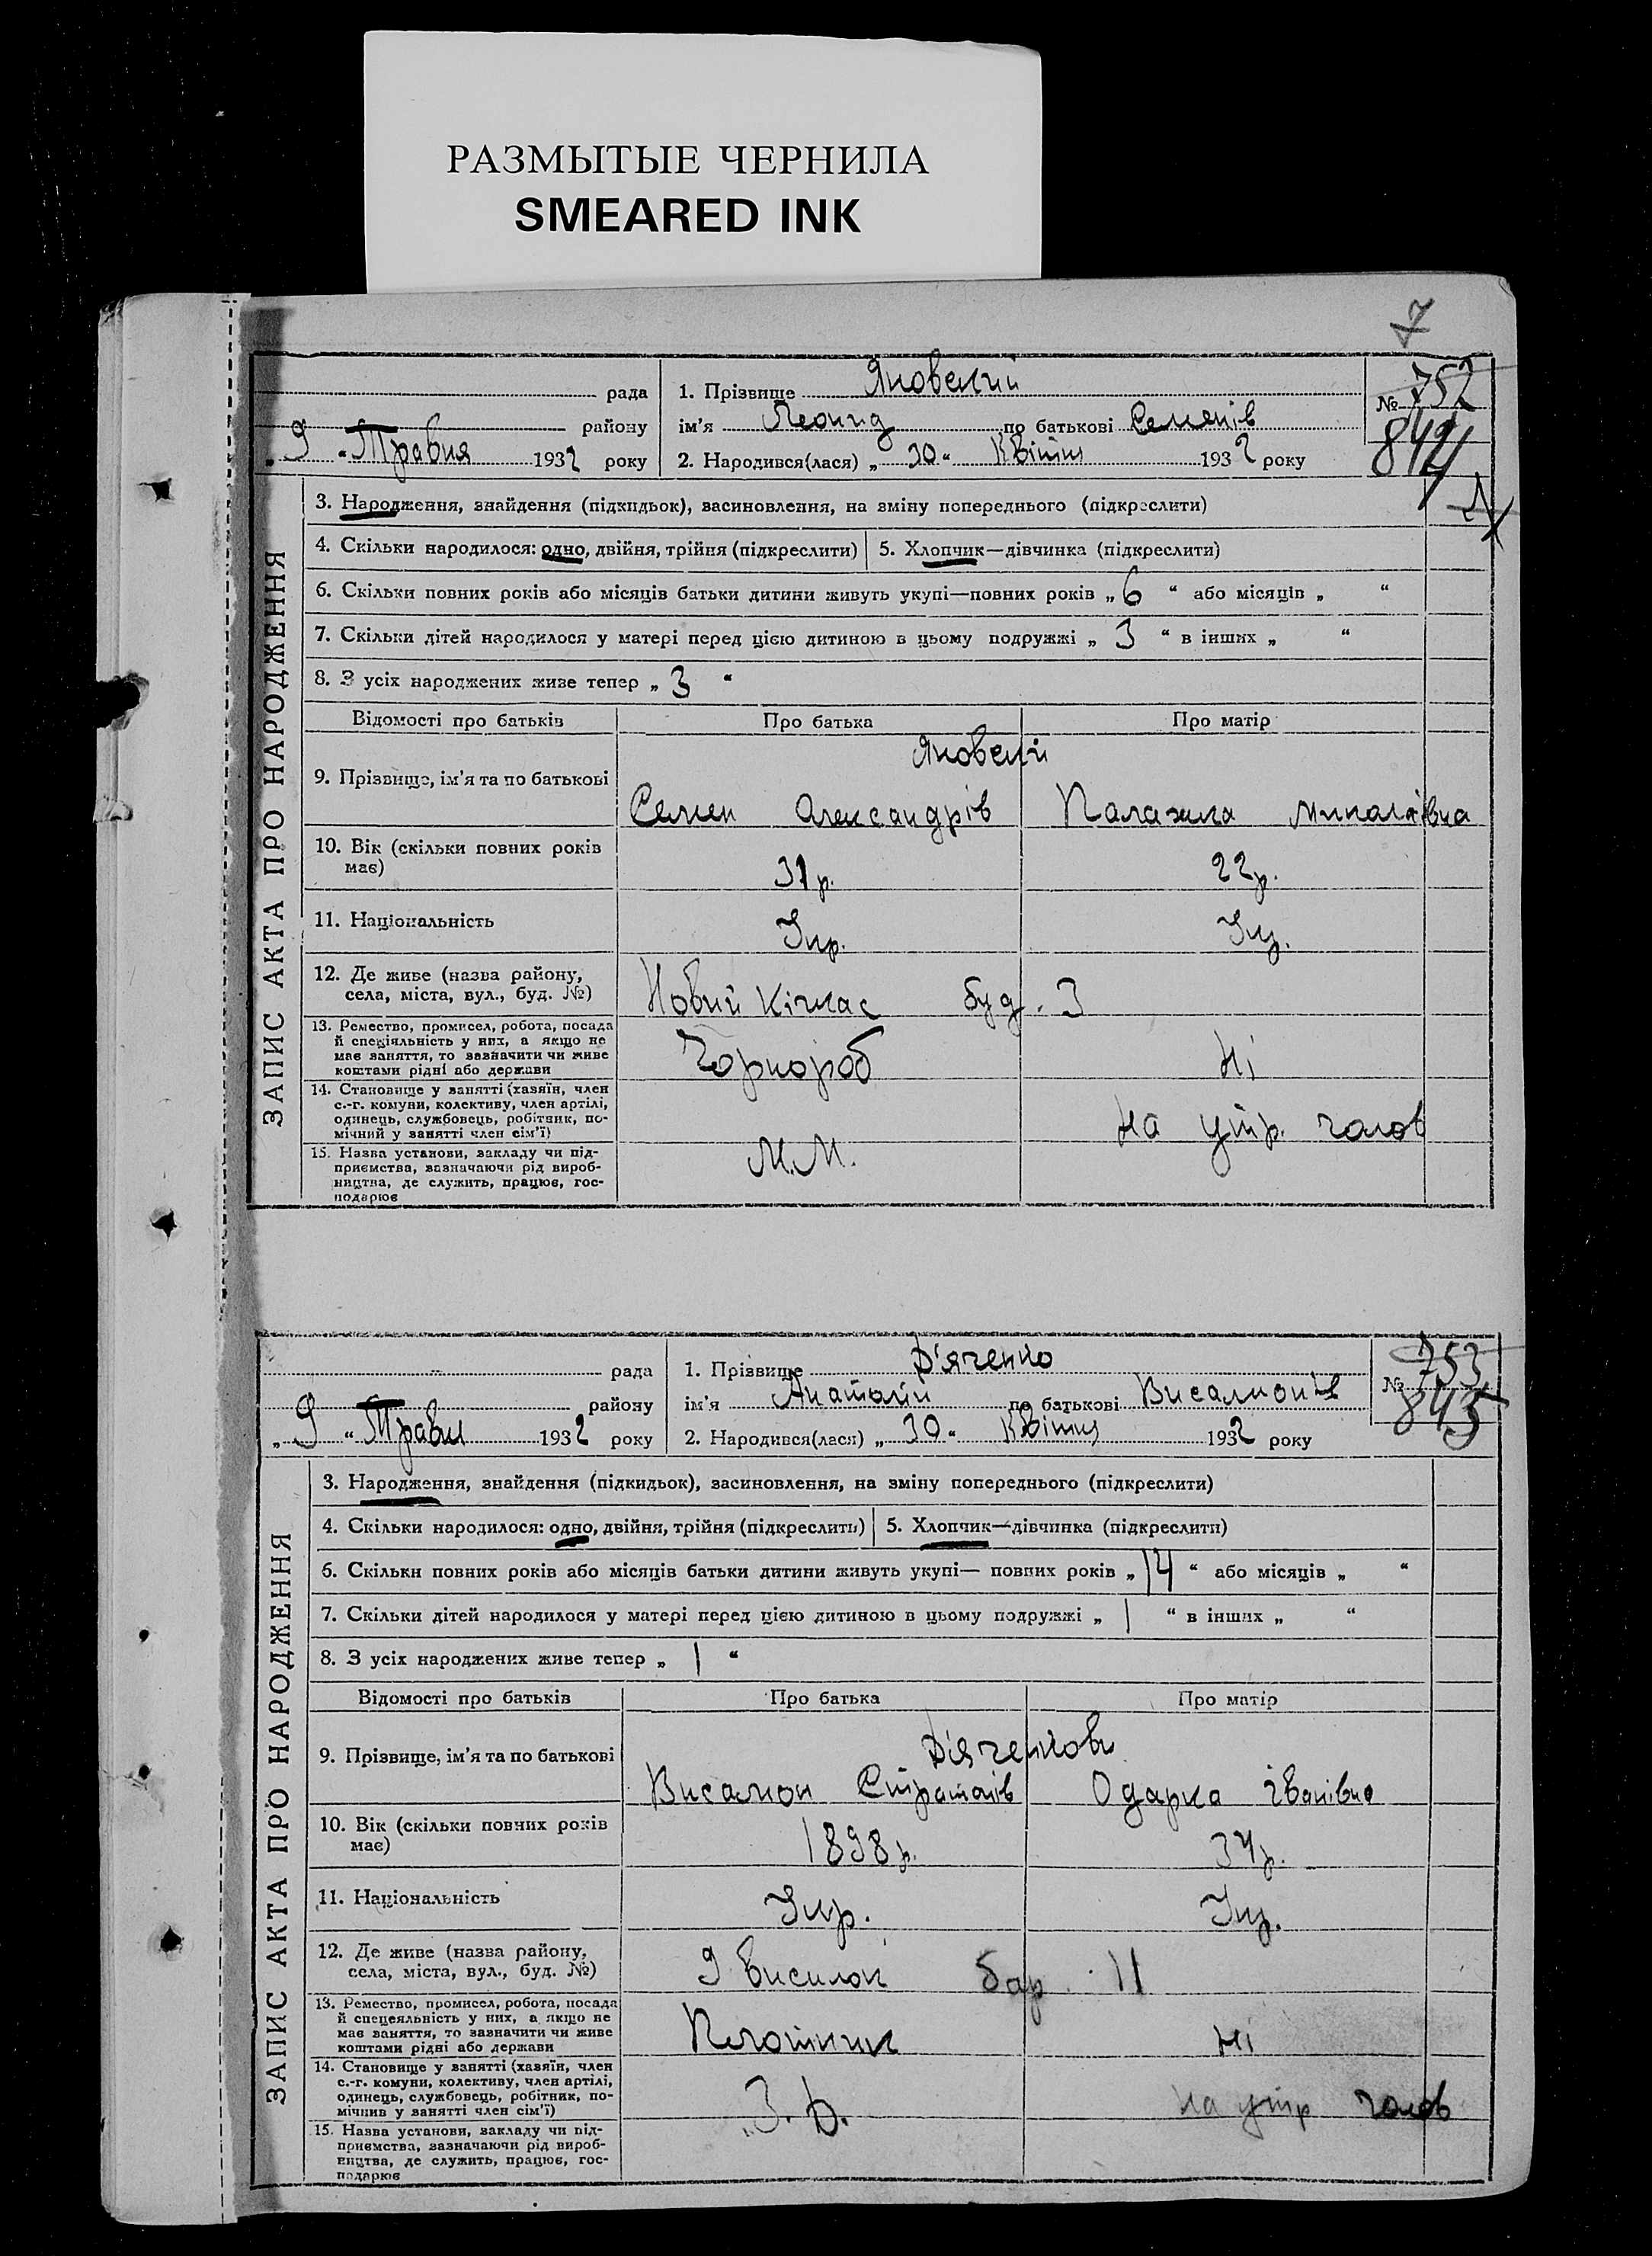 РАЗМЫТЫЕ ЧЕРНИЛА
SMEARED INK
7
ЗАПИС АКТА ПРО НАРОДЖЕННЯ
рада
району
„ 9 “ Травня 1932 року
1. Прізвище Яновський
ім'я Леонид по батькові Семенів
2. Народився(лася) „ 30 “ Квітня 1932 року
№ 752
844
3. Народження, знайдення (підкидьок), васиновлення, на зміну попереднього (підкреслити)
4. Скільки народилося: одно, двійня, трійня (підкреслити) 5. Хлопчик—дівчинка (підкреслити)
6. Скільки повних років або місяців батьки дитини живуть укупі—повних років „ 6 “ або місяців „ “
7. Скільки дітей народилося у матері перед цією дитиною в цьому подружжі „ 3 “ в інших „ “
8. З усіх народжених живе тепер „ 3 “
Відомості про батьків Про батька Про матір
9. Прізвище, ім'я та по батькові
Семен Александрів
10. Вік (скільки повних років має) 31 р. 22 р.
11. Національність Укр. Укр.
12. Де живе (назва району, села, міста, вул., буд. №) Новий Кічкас буд. 3
13. Ремество, промисел, робота, посада
й спеціяльність у них, а якщо не
має заняття, то зазначити чи живе
коштами рідні або держави
Чорнороб Ні
14. Становище у занятті (хазяїн, член
с.-г. комуни, колективу, член артілі,
одинець, службовець, робітник, по-
мічний у занятті член сім'ї)
на утр. голов
15. Назва установи, закладу чи під-
приємства, зазначаючи рід вироб-
ництва, де служить, працює, гос-
подарює
М.М.
ЗАПИС АКТА ПРО НАРОДЖЕННЯ
рада
району
„ 9 “ Травн 1932 року
1. Прізвище Д'яченко
ім'я Анатолій по батькові Висалионів
2. Народився(лася) „ 30 “ Квітня 1932 року
№ 753
845
3. Народження, знайдення (підкидьок), засиновлення, на зміну попереднього (підкреслити)
4. Скільки народилося: одно, двійня, трійня (підкреслить) 5. Хлопчик—дівчинка (підкреслити)
6. Скільки повних років або місяців батьки дитини живуть укупі— повних років „ 14 “ або місяців „ “
7. Скільки дітей народилося у матері перед цією дитиною в цьому подружжі „ 1 “ в інших „ “
8. З усіх народжених живе тепер „ 1 “
Відомості про батьків Про батька Про матір
9. Прізвище, ім'я та по батькові
Д'яченкови
Висалион Одарка Іванівна
10. Вік (скільки повних років має) 1898 р. 34 р.
11. Національність Укр. Укр.
12. Де живе (назва району, села, міста, вул., буд. №) 9 висилок бар. 11
13. Ремество, промисел, робота, посада
й спецеяльність у них, а якщо не
має заняття, то зазначити чи живе
коштами рідні або держави
Плотник Ні
14. Становище у занятті (хазяїн, член
с.-г. комуни, колективу, член артілі,
одинець, службовець, робітник, по-
мічнив у занятті член сім'ї)
на утр голов
15. Назва установи, закладу чи під-
приємства, зазначаючи рід вироб-
ництва, де служить, працює, гос-
подарює